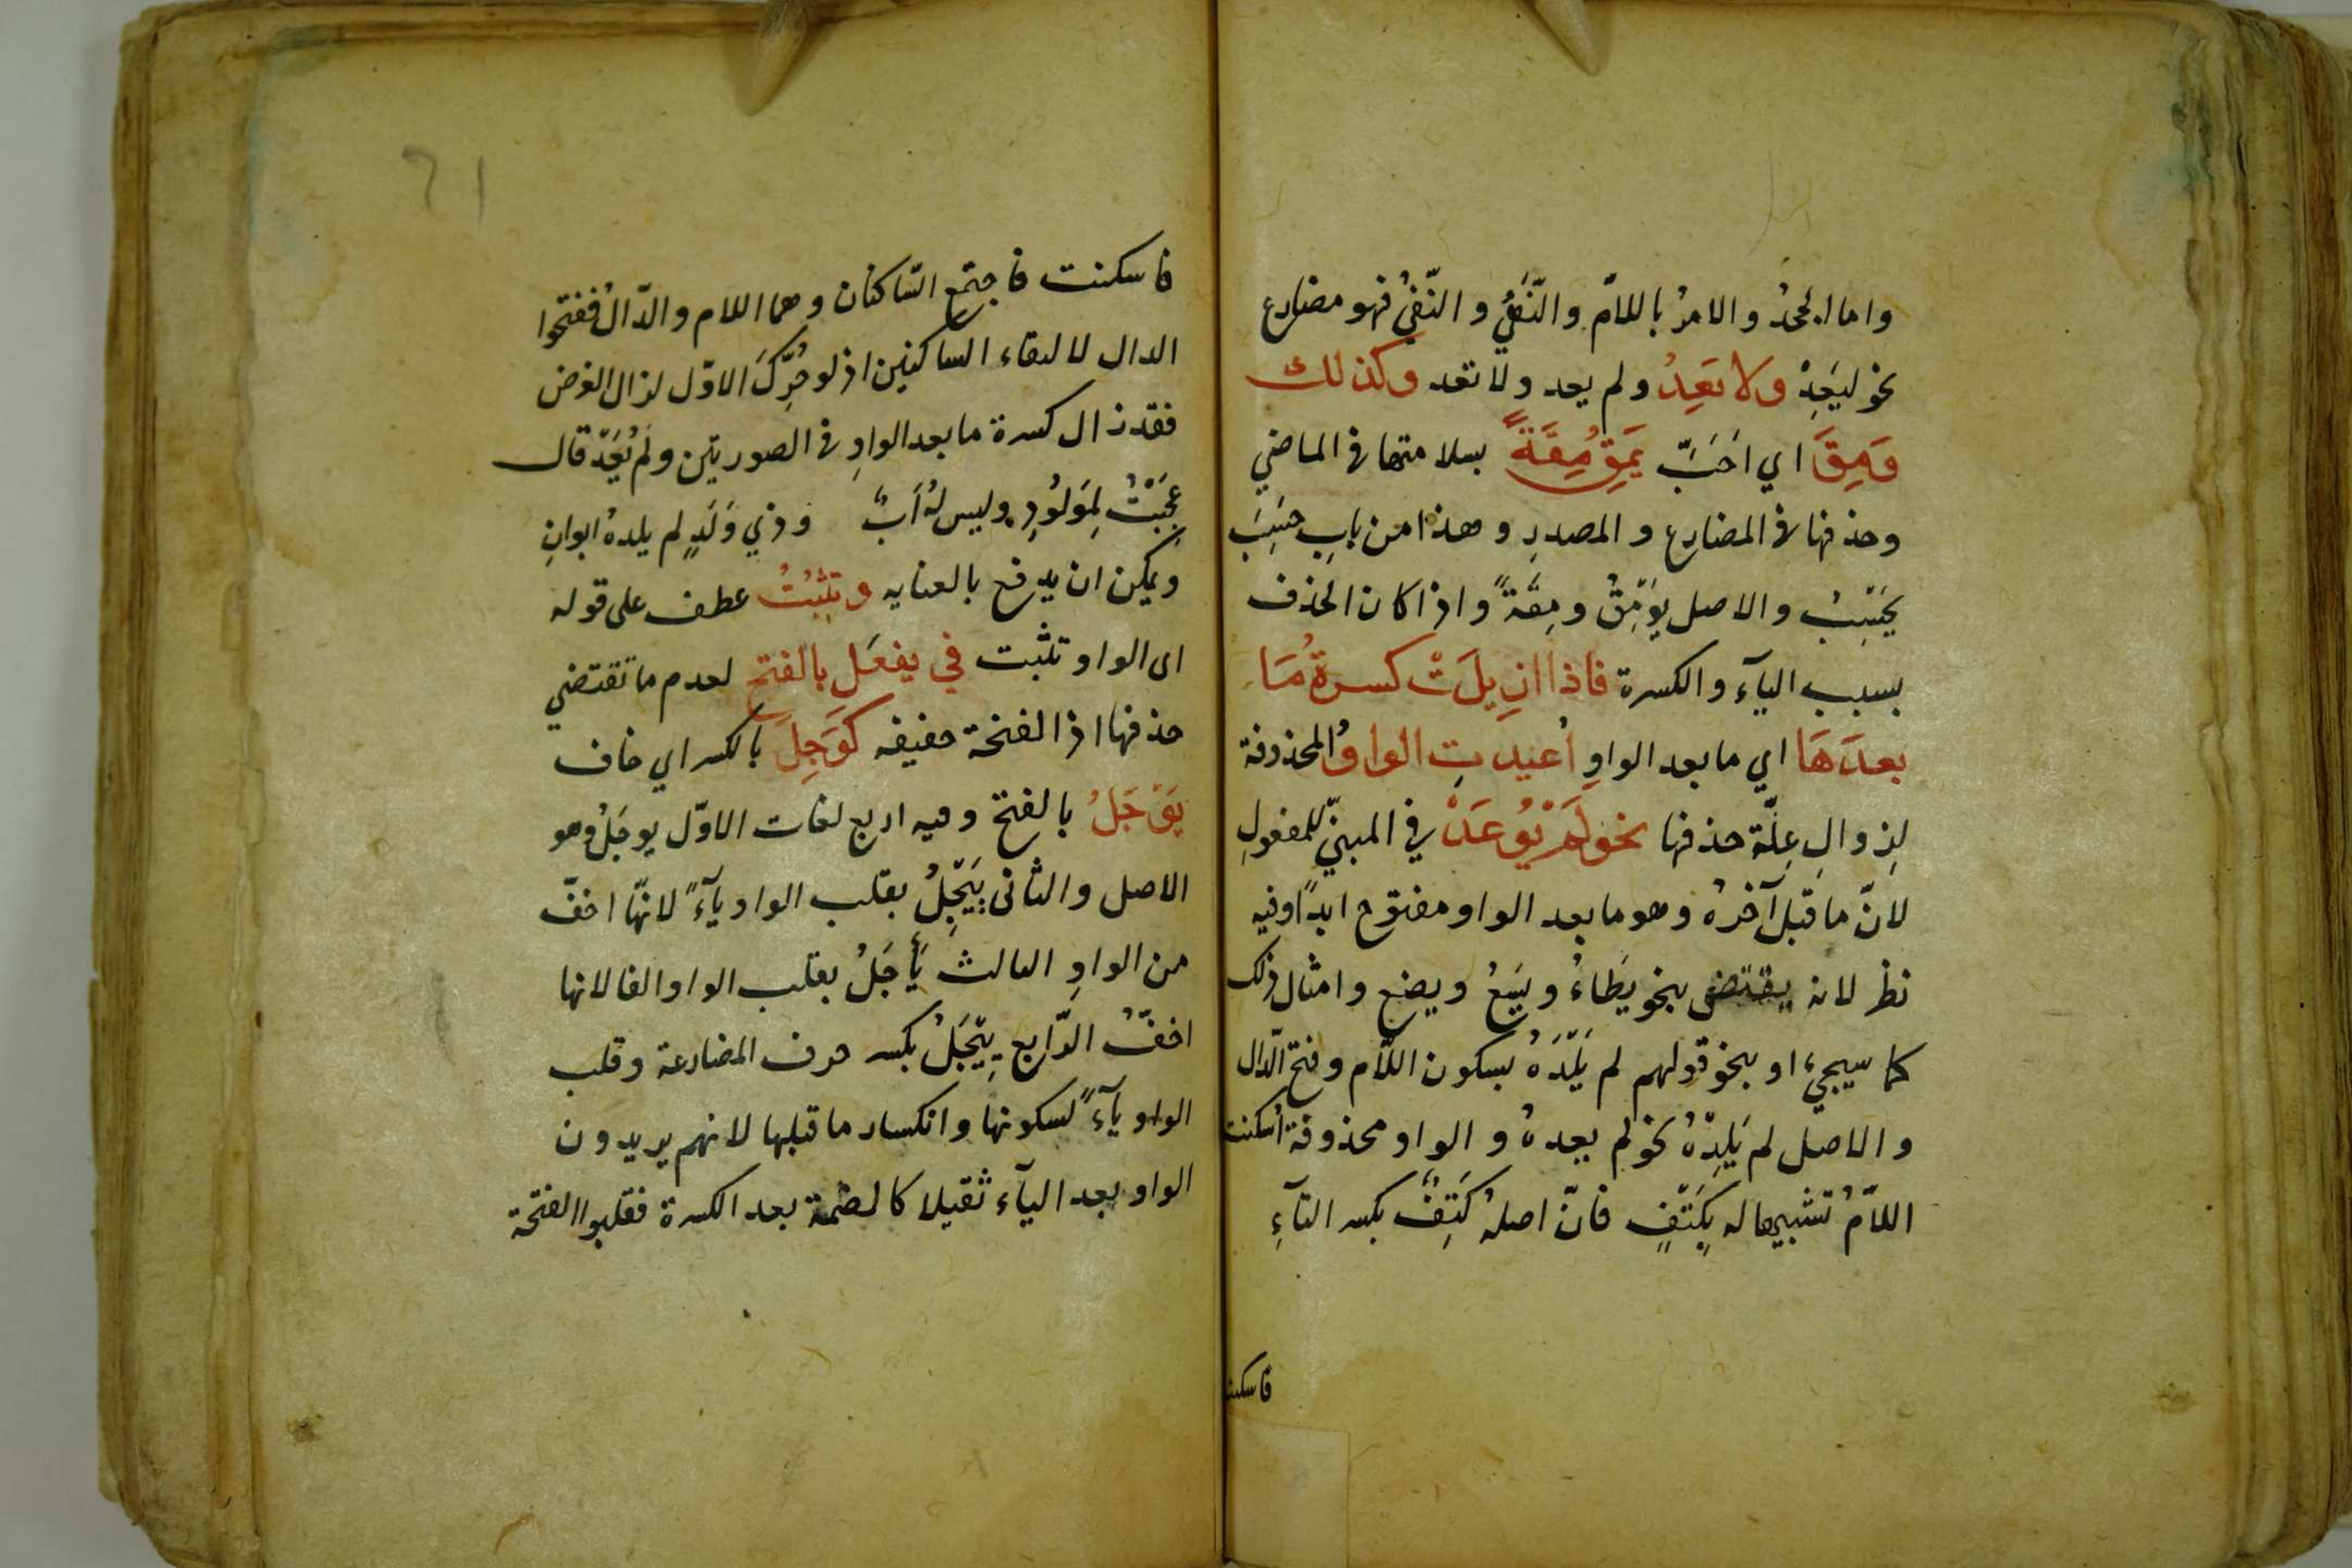 واما الجحدُ والامرُ باللامّ والنّفيُ والنّفيُ فهو مضارع
نحو ليَعِدْ ولا تعِدْ ولم يعد ولا تعد وكذلك
وَمِقَ اي اَحَبَّ يَمِقُ مِقَةً بسلامتها فى الماضي
وحذفها فى المضارع والمصدرِ وهذا من بابِ حسِبَ
يحْسِبُ والاصل يوْمِقُ ومِقَةً واذا كان الحذف
بسبب اليآء والكسرة فاذا ازِيلَتْ كسرةُ مَا
بعدَهَا اي ما بعد الواوِ اُعيدتِ الواوُ المحذوفة
لِزوالِ عِلّة حذفها نحو لَمْ يُوعَدْ في المبنيّ للمفعولِ
لانّ ما قبل آخرهُ وهو ما بعد الواو مفتوح ابداً وفيه
نظر لانه يقتضى بنحو يَطَاءُ ويَسَعُ ويضع وامثال ذلك
كما سيجيء او بنحو قولهم لم يَلْدَهُ بسكون اللاّم وفتح الدّال
والاصل لم يَلِدْهُ نحو لم يعدهُ والواو محذوفة اُسكنت
اللاّمُ تشبيها له بِكَتْفٍ فانّ اصلهُ كَتِفٌ بكسر التآءِ
فاسكنت
٦١
فاسكنت فاجتمع السّاكنان وهما اللام والدّالُ ففتحوا
الدال لالتقاء الساكنين اذ لو حُرِّكَ الاوّل لزال الغرض
فقد زال كسرة ما بعد الواوِ فى الصورتين ولم يُعَدْ قال
عجَبْتُ لِمَولُودٍ وليس لهُ اَبٌ وذي وَلَدٍ لم يلدهُ ابوانِ
ويمكن ان يدفع بالعنايه وتثبُتُ عطف على قوله
اى الواو تثبت في يفعَلِ بالفتحِ لعدم ما تقتضي
حذفها اذ الفتحة خفيفه كوَجِلَ بالكسر اي خاف
يَوْجَلُ بالفتح وفيه اربع لغات الاوّل يوجَلُ وهو
الاصل والثانى يَيْجَلُ بقلب الواو يآءً لانّها اخفّ
من الواوِ الثالث يَأجَلُ بقلب الواو الفا لانها
اخفّ الرّابع يِيْجَلُ بكسر حرف المضارعة وقلب
الواو يآءً لسكونها وانكسار ما قبلها لانهم يريدون
الواو بعد اليآء ثقيلا كالضمة بعد الكسرة فقلبوا الفتحة